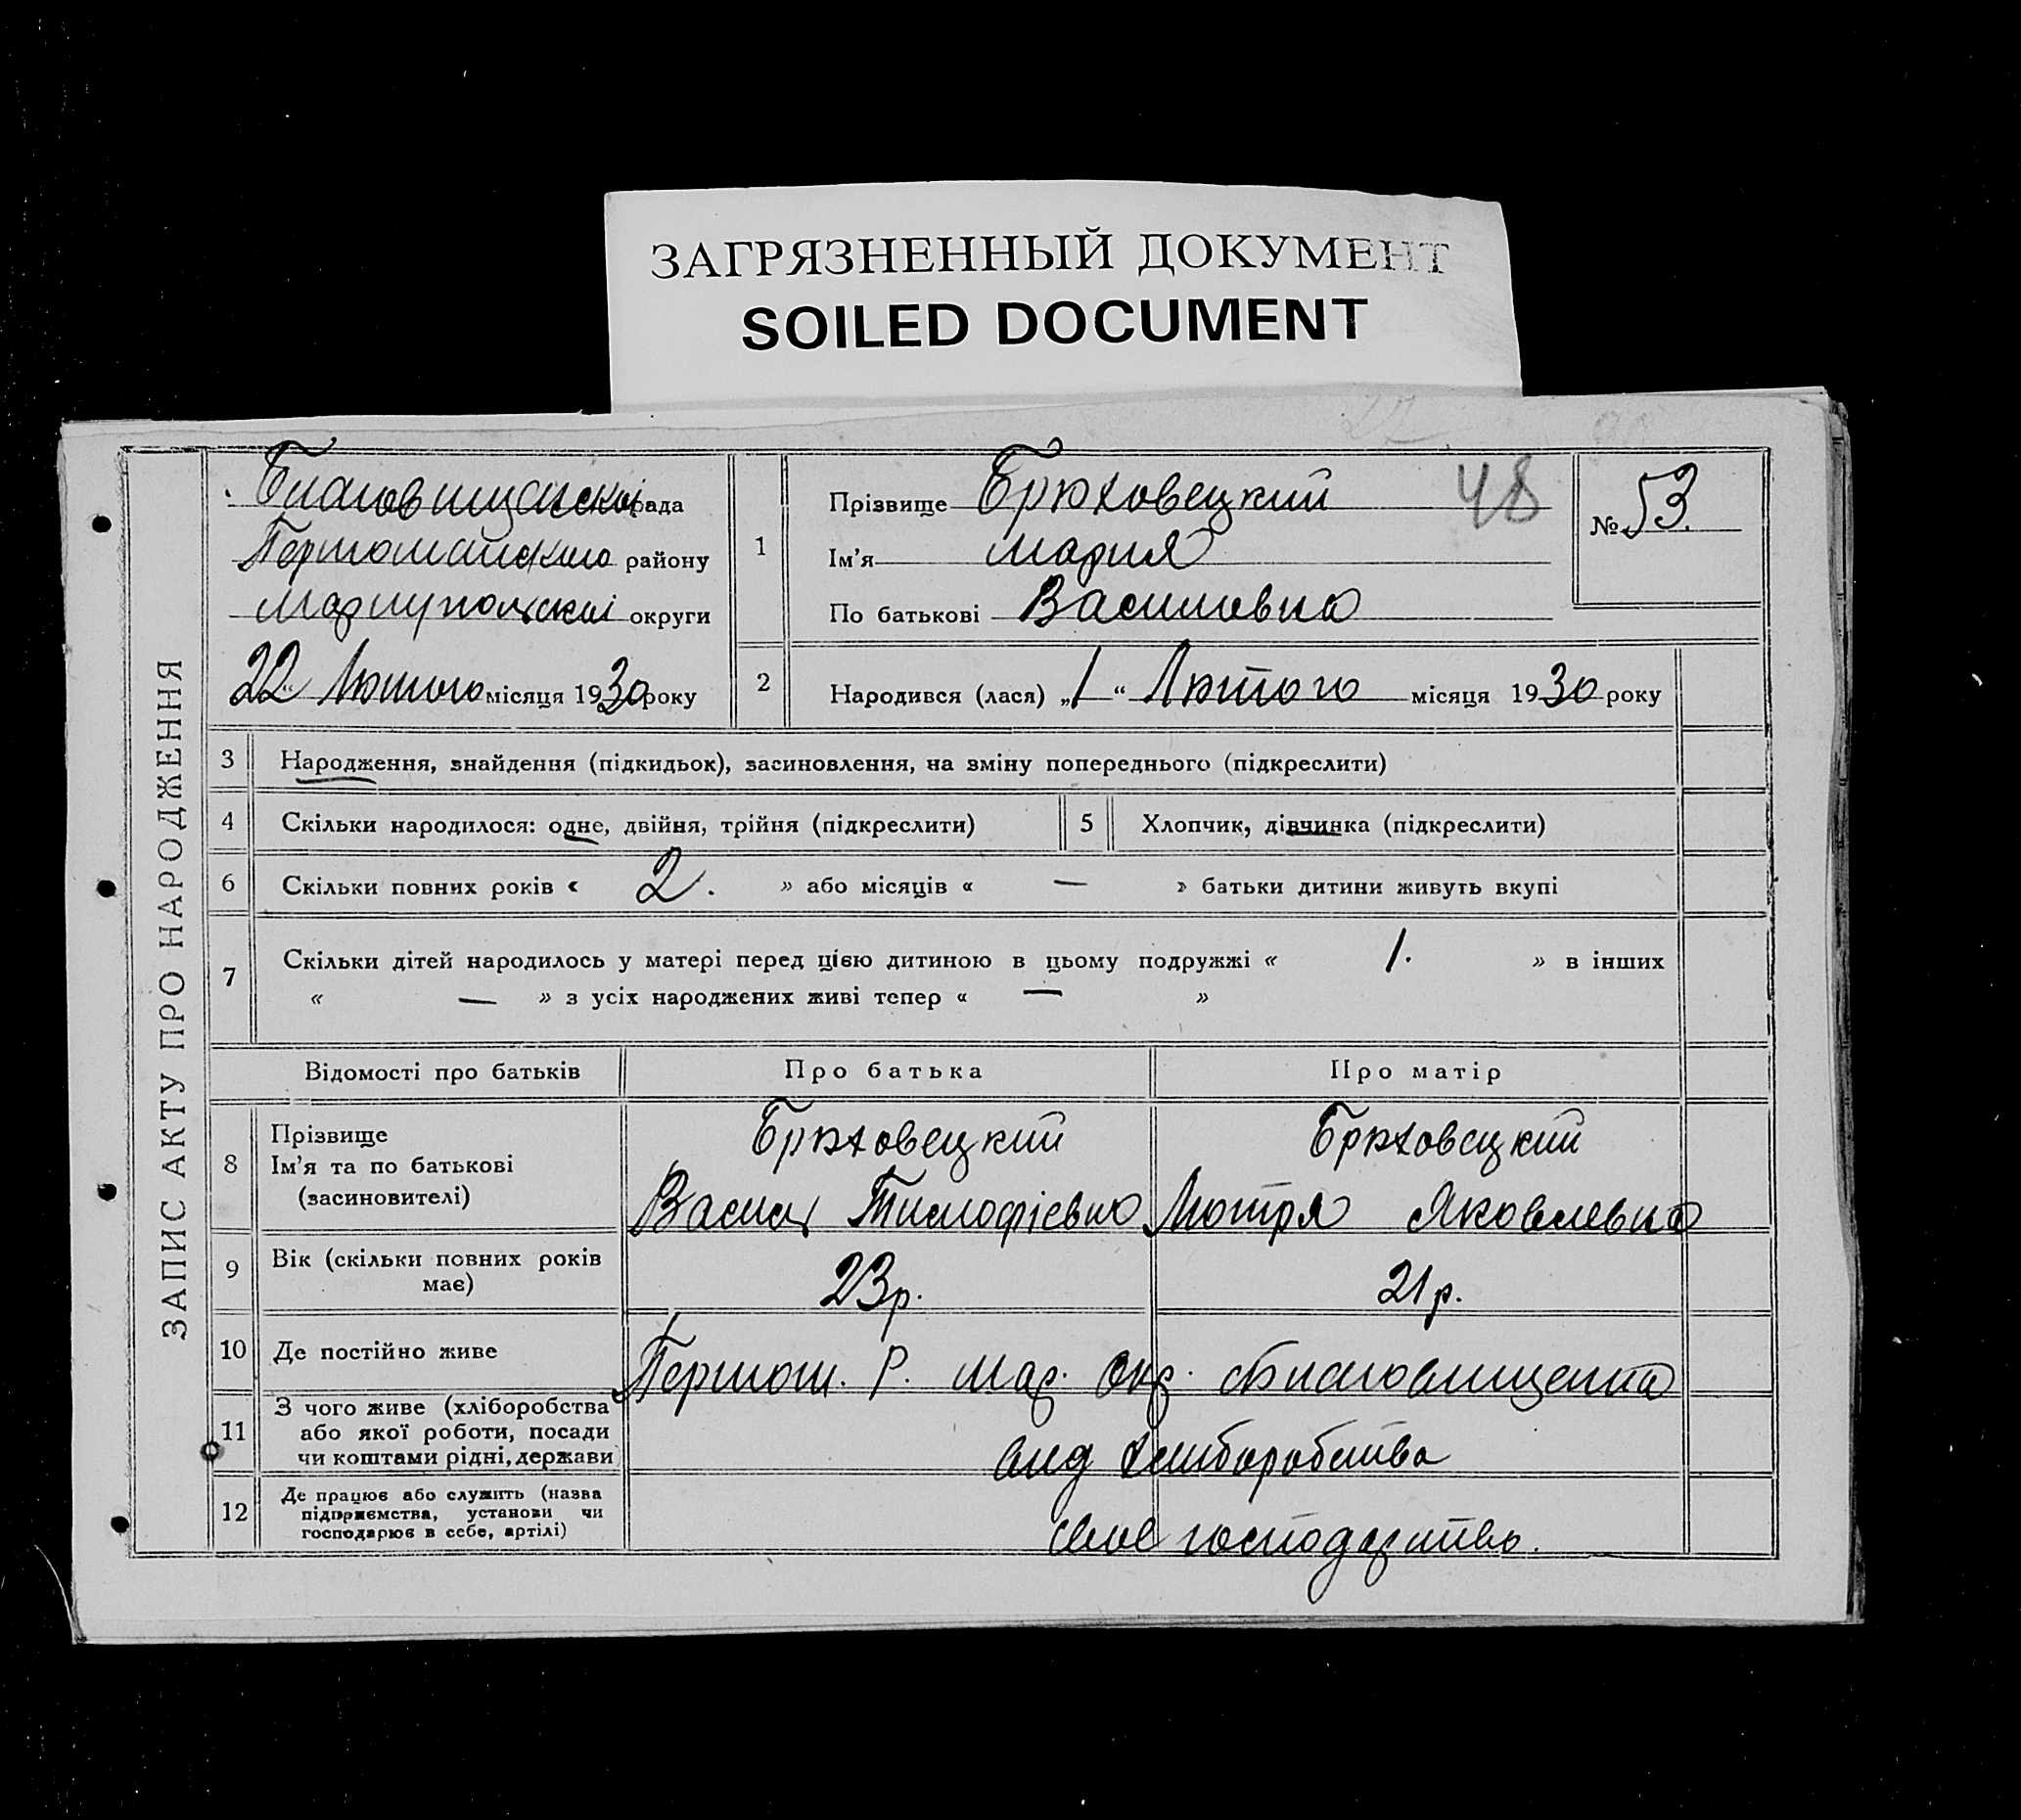 ЗАГРЯЗНЕННЫЙ ДОКУМЕНТ
SOILED DOCUMENT
ЗАПИС АКТУ ПРО НАРОДЖЕННЯ
Благовищанскоі рада
Першомайского району
Мариупольскоі округи
22 Лютого місяця 1930 року
1
Прізвище Брюховецкий 48
Ім'я Мария
По батькові Василовна
№ 53.
2 Народився (лася) „1“ Лютого місяця 1930 року
3 Народження, знайдення (підкидьок), засиновлення, на зміну попереднього (підкреслити)
4 Скільки народилося: одне, двійня, трійня (підкреслити) 5 Хлопчик, дівчинка (підкреслити)
6 Скільки повних років « 2. » або місяців « — » батьки дитини живуть вкупі
7 Скільки дітей народилось у матері перед цією дитиною в цьому подружжі « 1. » в інших
« — » з усіх народжених живі тепер « — »
Відомості про батьків Про батька Про матір
8 Прізвище
Ім'я та по батькові
(засиновителі)
Брюховецкий
Василь Тимофієвич
Брюховецкий
Мотря Яковлевна
9 Вік (скільки повних років має) 23р. 21р.
10 Де постійно живе Першом. Р. Мар. Окр. с Благовищенка
11 З чого живе (хліборобства
або якої роботи, посади
чи коштами рідні, держави
вид хлиборобства
12 Де працює або служить (назва
підприємства, установи чи
господарює в себе, артілі)
своє господарство.